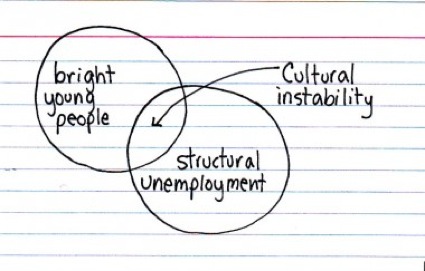 bright
young
people
Cultural
instability
structural
unemployment